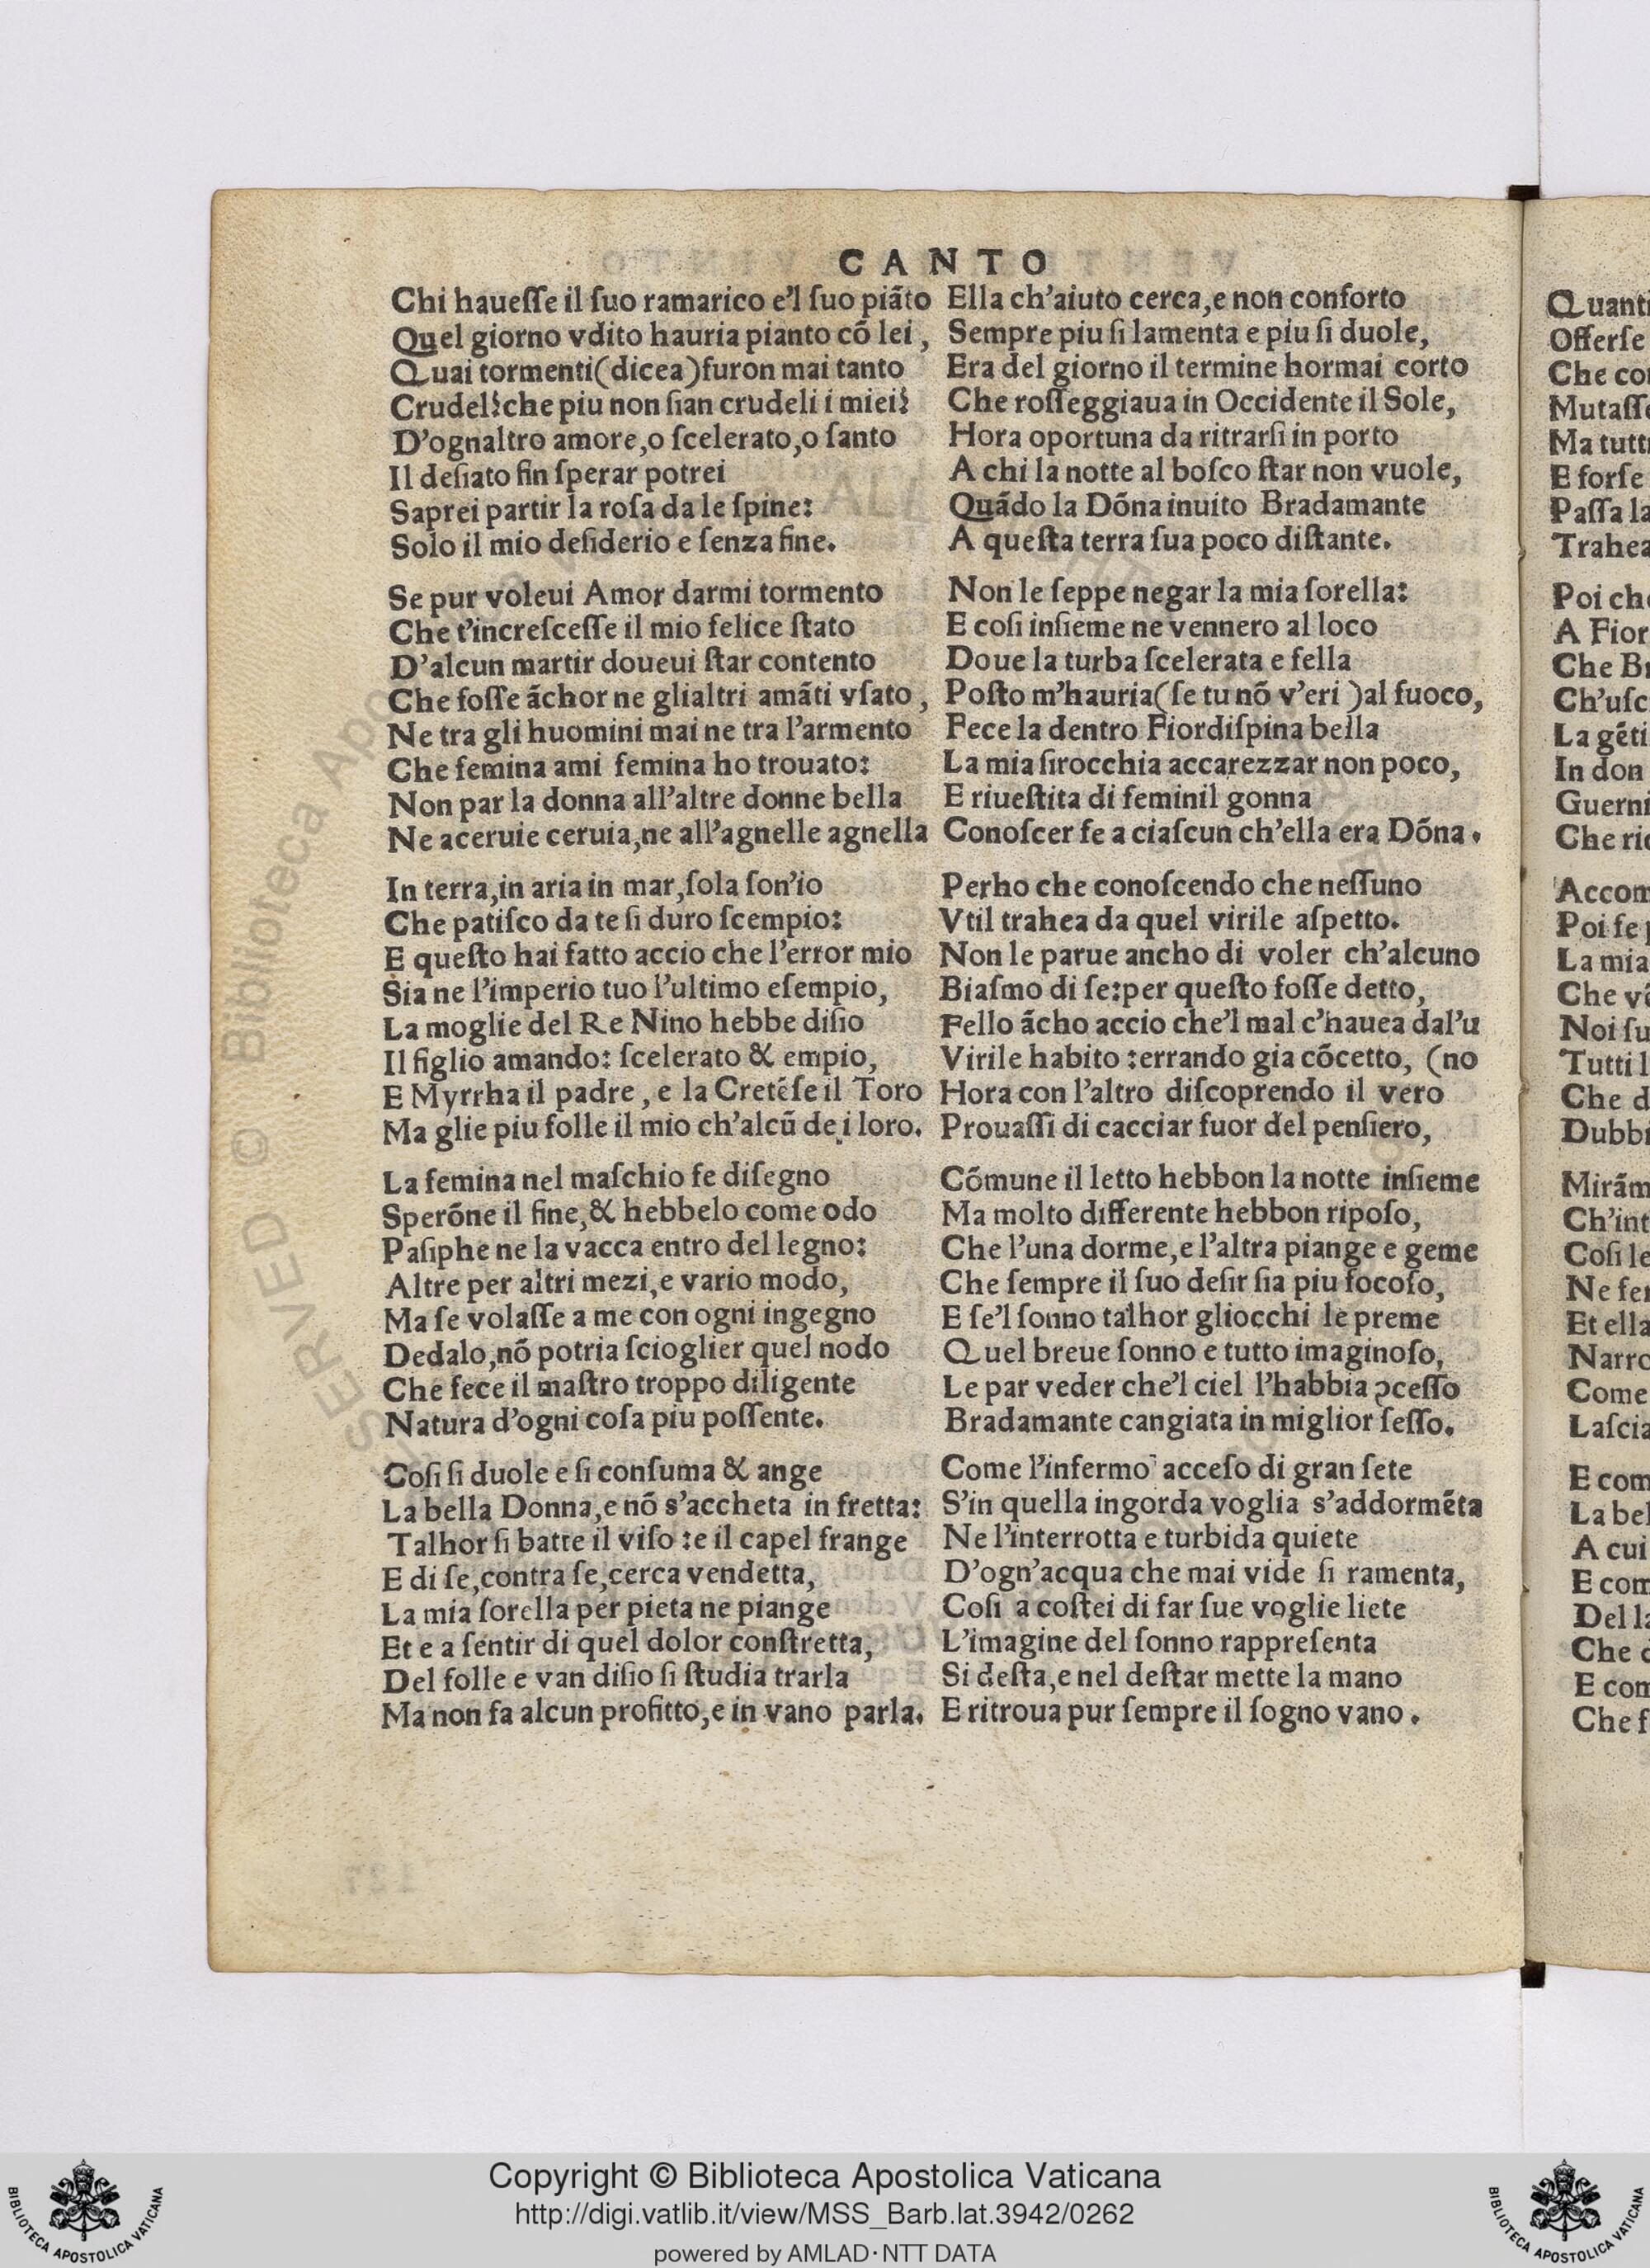 CANTO
Chi haueſſe il ſuo ramarico e'l ſuo piãto
Quel giorno vdito hauria pianto cõ lei,
Quai tormenti(dicea)furon mai tanto
Crudel?che piu non ſian crudeli i miei?
D'ognaltro amore,o ſcelerato,o ſanto
Il deſiato fin ſperar potrei
Saprei partir la roſa da le ſpine:
Solo il mio deſiderio e ſenza fine.
Se pur voleui Amor darmi tormento
Che t'increſceſſe il mio felice ſtato
D'alcun martir doueui ſtar contento
Che foſſe ãchor ne glialtri amãti vſato,
Ne tra gli huomini mai ne tra l'armento
Che femina ami femina ho trouato:
Non par la donna all'altre donne bella
Ne aceruie ceruia,ne all'agnelle agnella
In terra,in aria in mar,ſola ſon'io
Che patiſco da te ſi duro ſcempio:
E queſto hai fatto accio che l'error mio
Sia ne l'imperio tuo l'ultimo eſempio,
La moglie del Re Nino hebbe diſio
Il figlio amando: ſcelerato & empio,
E Myrrha il padre, e la Cretẽſe il Toro
Ma glie piu folle il mio ch'alcũ de i loro.
La femina nel maſchio fe diſegno
Sperõne il fine,& hebbelo come odo
Paſiphe ne la vacca entro del legno:
Altre per altri mezi,e vario modo,
Ma ſe volaſſe a me con ogni ingegno
Dedalo,nõ potria ſcioglier quel nodo
Che fece il maſtro troppo diligente
Natura d'ogni coſa piu poſſente.
Coſi ſi duole e ſi conſuma & ange
La bella Donna,e nõ s'accheta in fretta:
Talhor ſi batte il viſo :e il capel frange
E di ſe,contra ſe,cerca vendetta,
La mia ſorella per pieta ne piange
Et e a ſentir di quel dolor conſtretta,
Del folle e van diſio ſi ſtudia trarla
Ma non fa alcun profitto,e in vano parla.
Ella ch'aiuto cerca,e non conforto
Sempre piu ſi lamenta e piu ſi duole,
Era del giorno il termine hormai corto
Che roſſeggiaua in Occidente il Sole,
Hora oportuna da ritrarſi in porto
A chi la notte al boſco ſtar non vuole,
Quãdo la Dõna inuito Bradamante
A queſta terra ſua poco diſtante.
Non le ſeppe negar la mia ſorella:
E coſi inſieme ne vennero al loco
Doue la turba ſcelerata e fella
Poſto m'hauria(ſe tu nõ v'eri )al fuoco,
Fece la dentro Fiordiſpina bella
La mia ſirocchia accarezzar non poco,
E riueſtita di feminil gonna
Conoſcer fe a ciaſcun ch'ella era Dõna.
Perho che conoſcendo che neſſuno
Vtil trahea da quel virile aſpetto.
Non le parue ancho di voler ch'alcuno
Biaſmo di ſe:per queſto foſſe detto,
Fello ãcho accio che'l mal c'hauea dal'u
Virile habito :errando gia cõcetto, (no
Hora con l'altro diſcoprendo il vero
Prouaſſi di cacciar fuor del penſiero,
Cõmune il letto hebbon la notte inſieme
Ma molto differente hebbon ripoſo,
Che l'una dorme,e l'altra piange e geme
Che ſempre il ſuo deſir ſia piu focoſo,
E ſe'l ſonno talhor gliocchi le preme
Quel breue ſonno e tutto imaginoſo,
Le par veder che'l ciel l'habbia ꝯceſſo
Bradamante cangiata in miglior ſeſſo.
Come l'infermo acceſo di gran ſete
S'in quella ingorda voglia s'addormẽta
Ne l'interrotta e turbida quiete
D'ogn'acqua che mai vide ſi ramenta,
Coſi a coſtei di far ſue voglie liete
L'imagine del ſonno rappreſenta
Si deſta,e nel deſtar mette la mano
E ritroua pur ſempre il ſogno vano.
Quanti
Offerſe
Che
Mutaſſe
Ma tutt
E forſe
Paſſa la
Trahea
Poi che
A Fior
Che Br
Ch'uſc
La gẽti
In don
Guerni
Che ric
Accom
Poi fe
La mia
Che
Noi ſu
Tutti l
Che d
Dubbi
Mirãm
Ch'int
Coſi le
Ne fer
Et ella
Narro
Come
Laſcia
E com
La bel
A cui
E com
Del la
Che
E com
Che f
Copyright © Biblioteca Apostolica Vaticana
http://digi.vatlib.it/view/MSS_Barb.lat.3942/0262
powered by AMLAD·NTT DATA
BIBLIOTECA APOSTOLICA VATICANA
BIBLIOTECA APOSTOLICA VATICANA